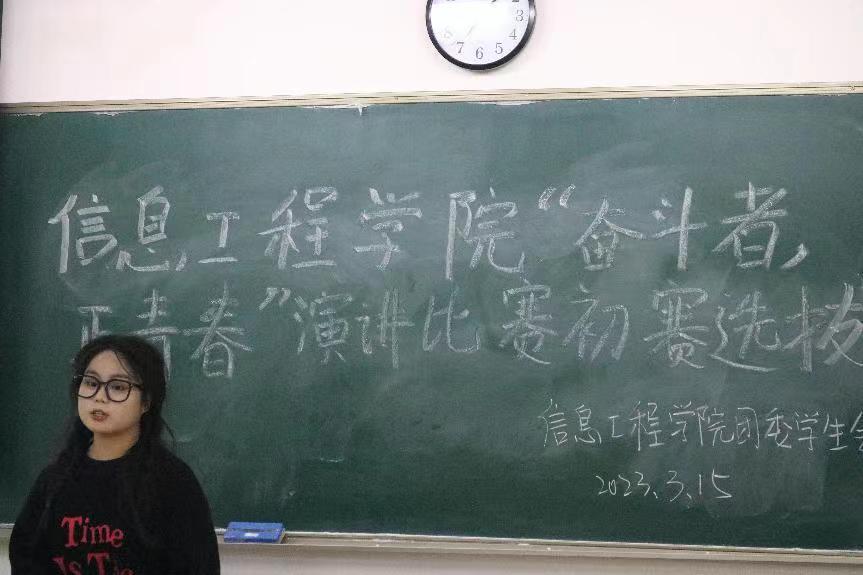 3
4
5
6
7
8
信息工程学院“奋斗者,
正青春”演讲比赛初赛选拔
信息工程学院团委学生会
2023.3.15
Time
Is The